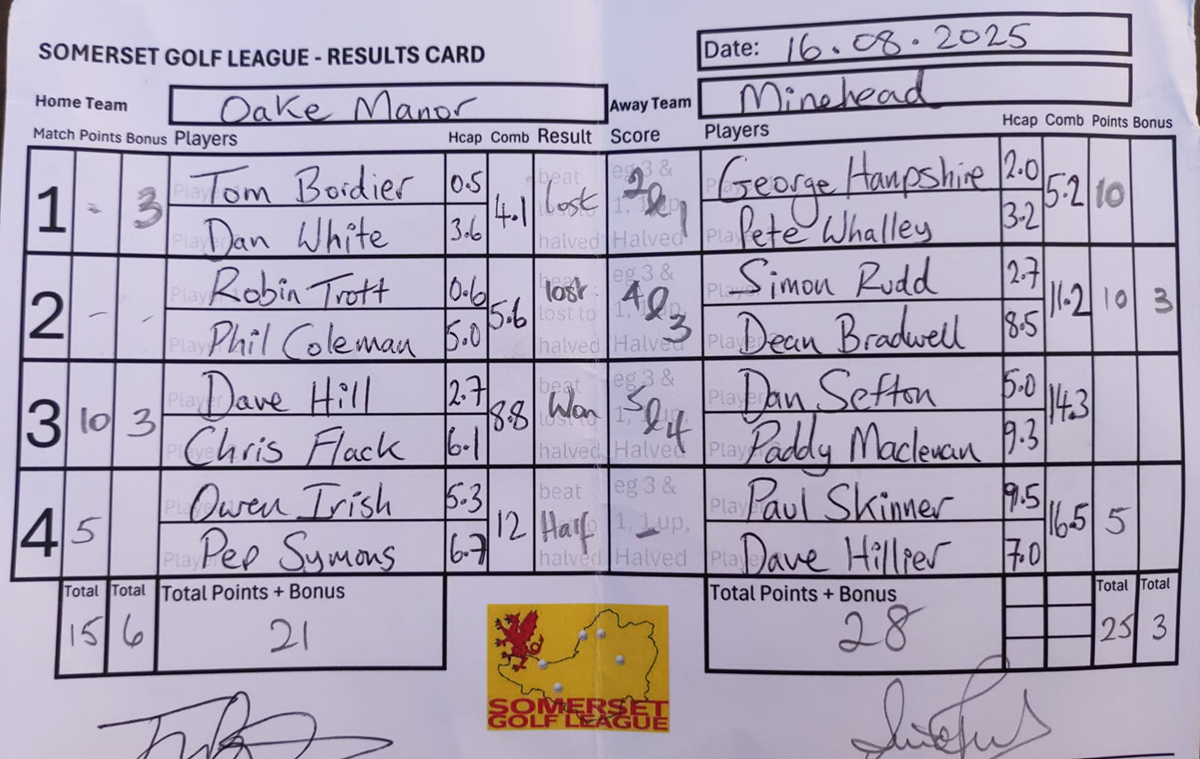 SOMERSET GOLF LEAGUE - RESULTS CARD
Date: 16.08.2025
Home Team Oake Manor Away Team Minehead
Match Points Bonus Players Hcap Comb Result Score Players Hcap Comb Points Bonus
1 - 3 Tom Bordier 0.5 4.1 lost 2&1 George Hanpshire 2.0 5.2 10
Dan White 3.6 Pete Whalley 3.2
2 - - Robin Trott 0.6 5.6 lost 4&3 Simon Rudd 2.7 11.2 10 3
Phil Coleman 5.0 Dean Bradwell 8.5
3 10 3 Dave Hill 2.7 8.8 Won 5&4 Dan Sefton 5.0 14.3
Chris Flack 6.1 Paddy Maclevan 9.3
4 5 Owen Irish 5.3 12 Half - Paul Skinner 9.5 16.5 5
Pep Symons 6.7 Dave Hillier 7.0
Total Total Total Points + Bonus Total Points + Bonus Total Total
15 6 21 28 25 3
SOMERSET
GOLF LEAGUE